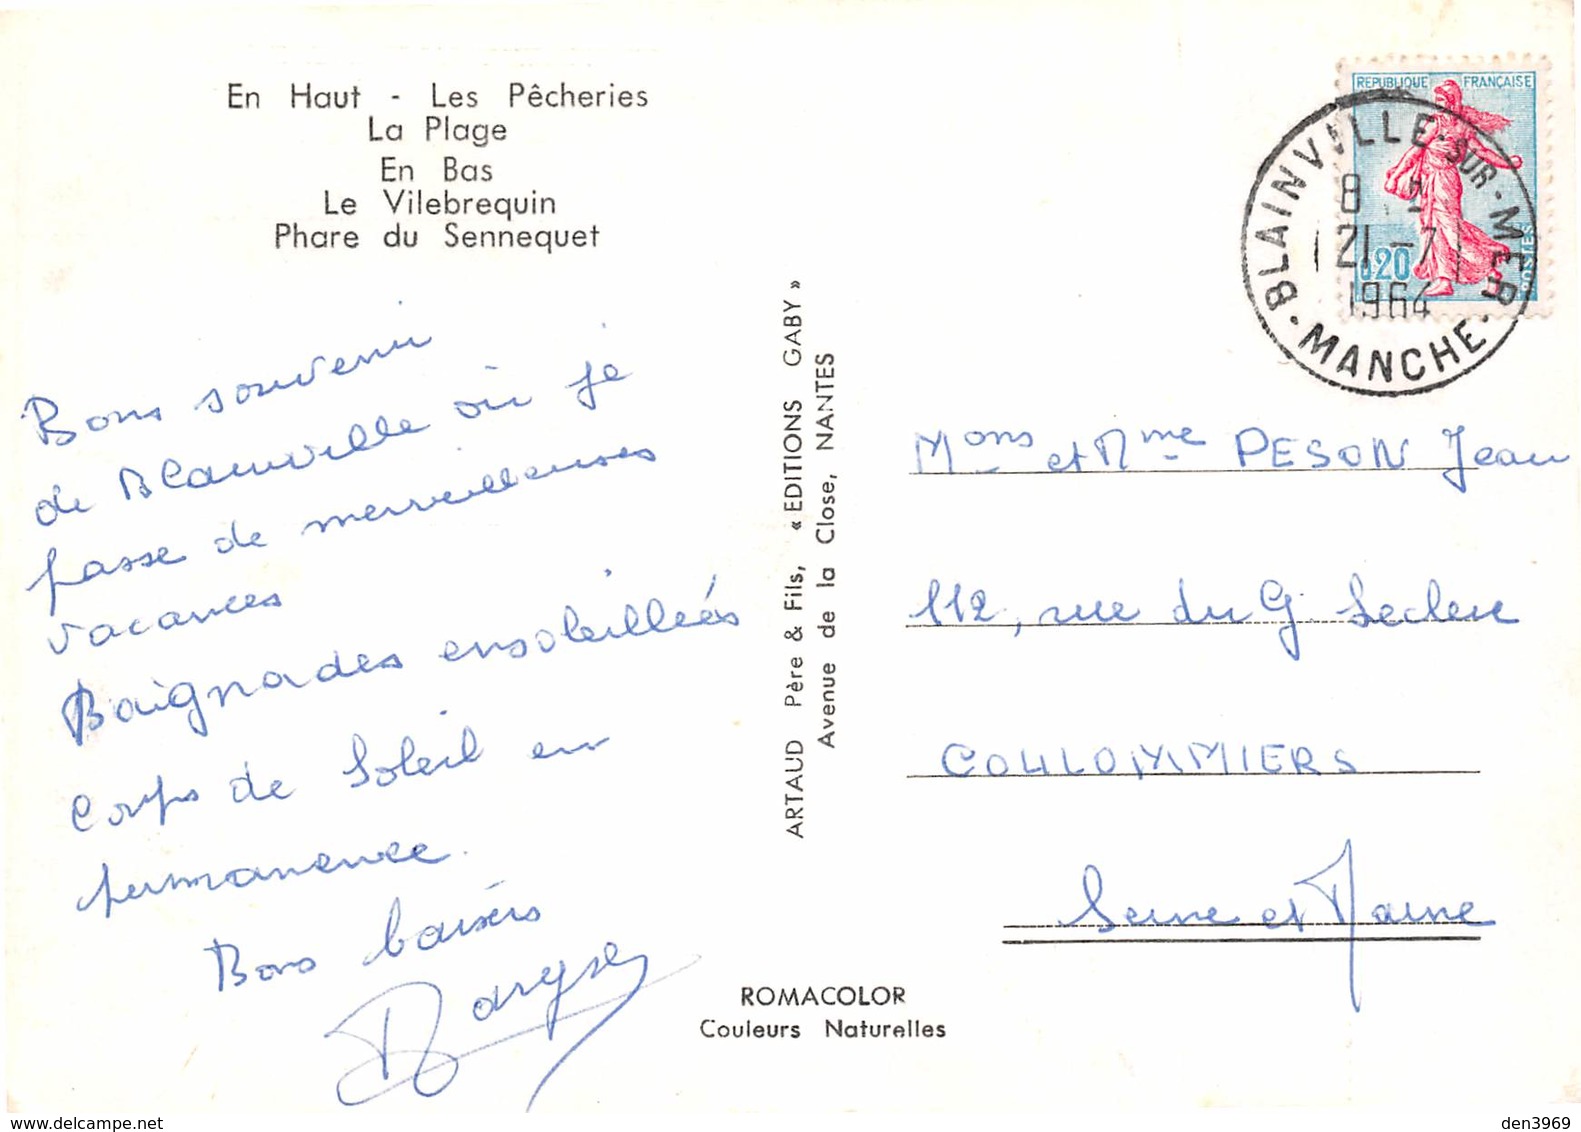 En Haut - Les Pêcheries
La Plage
En Bas
Le Vilebrequin
Phare du Sennequet
Bons souvenir
de Blainville où je
passe de merveilleuses
vacances
Baignades ensoleilleés
Corps de Soleil en
permanence.
Bons baisers
Maryse
ARTAUD Père & Fils, « EDITIONS GABY »
Avenue de la Close, NANTES
ROMACOLOR
Couleurs Naturelles
REPUBLIQUE FRANÇAISE
0,20
POSTES
BLAINVILLE-SUR-MER
21-7
1964
MANCHE
Mons et Mme PESON Jean
112, rue du G. Leclerc
COULOMMIERS
Seine et Marne
den3969